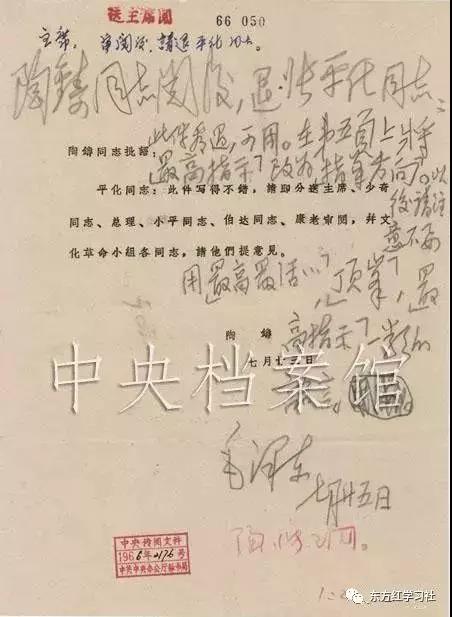 送主席閱
66 050
主席,审閱后,請退平化同志。
陶鑄同志閱后,退张平化同志:
此件看过,可用。在第五頁上将
「最高指示」改为「指导方向」。以
后請注
意不要
用「最高最活…」,「頂峯」,「最
高指示」一类的
陶鑄同志批語:
平化同志:此件写得不錯,請即分送主席、少奇
同志、总理、小平同志、伯达同志、康老审閱,幷文
化革命小組各同志,請他們提意見。
陶 鑄
七月十三日
毛泽东
七月廿五日
中央档案馆
中央传閱文件
1966年2176号
中共中央办公厅秘书局
东方红学习社